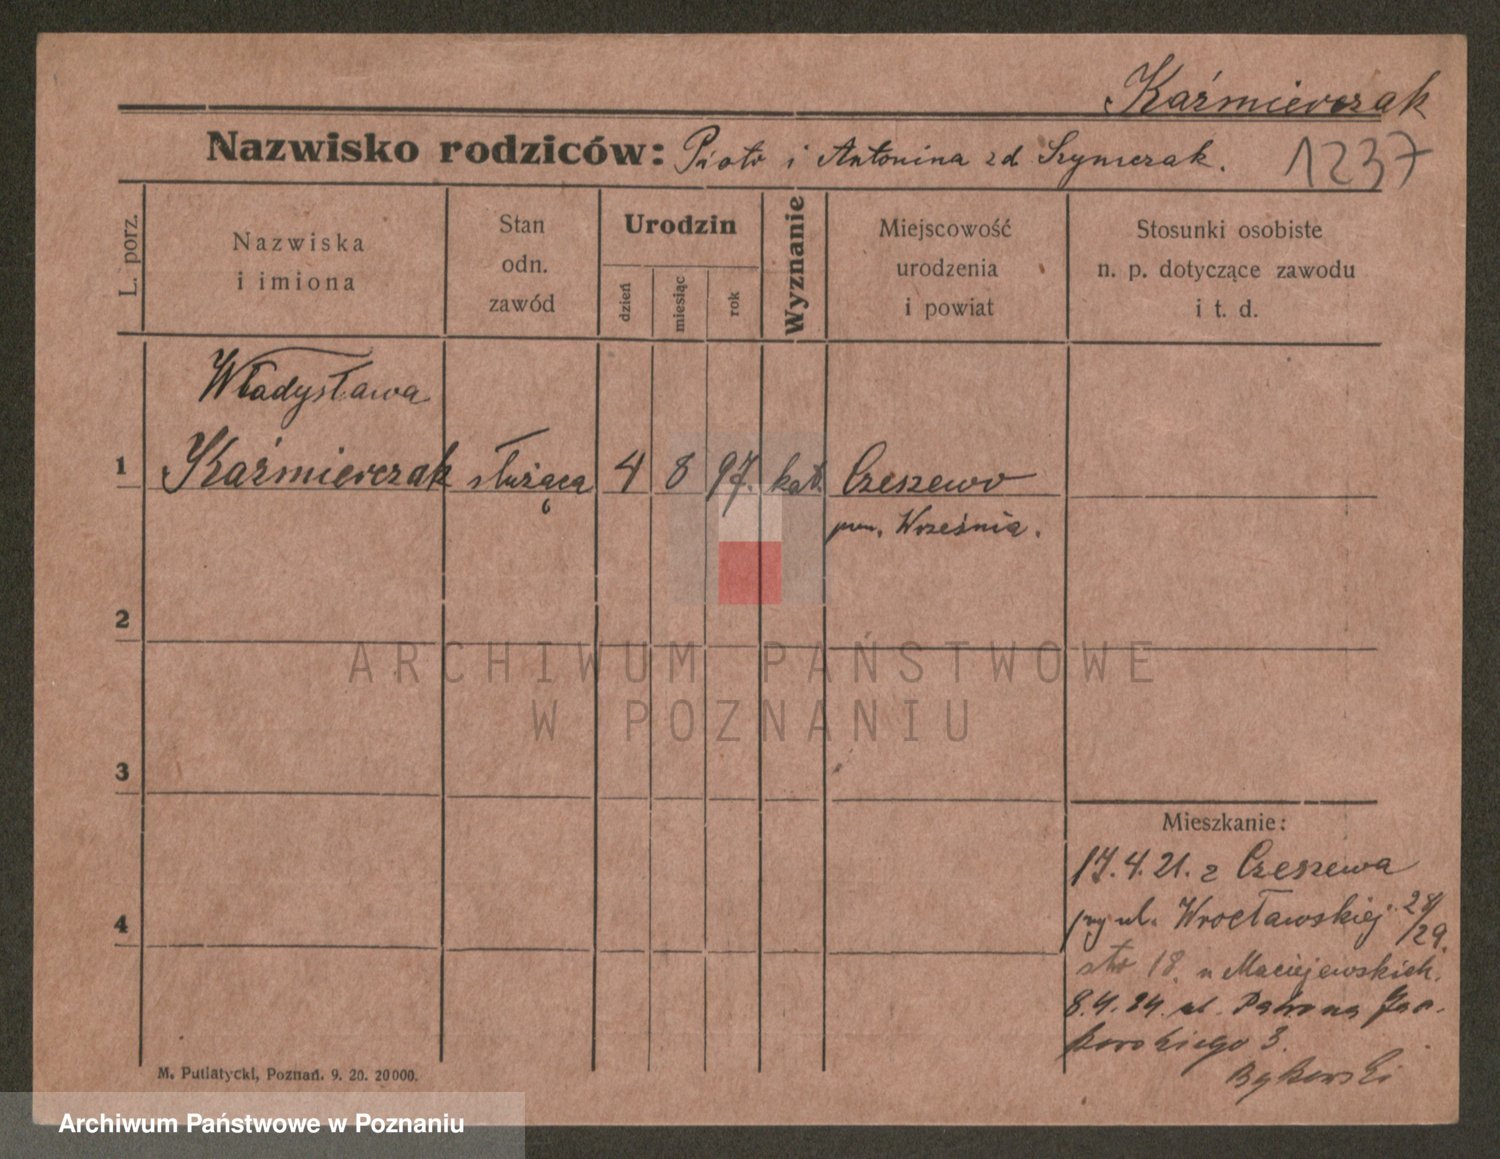 Kaźmierczak
Nazwisko rodziców: Piotr i Antonina zd Szymczak.
1237
L. porz.
Nazwiska
i imiona
Stan
odn.
zawód
Urodzin
dzień
miesiąc
rok
Wyznanie
Miejscowość
urodzenia
i powiat
Stosunki osobiste
n. p. dotyczące zawodu
i t. d.
Władysława
1 Kaźmierczak służąca 4 8 97. kat. Czeszewo
pow. Września.
2
ARCHIWUM PAŃSTWOWE
W POZNANIU
3
4
Mieszkanie:
17.4.21. z Czeszewa
przy ul. Wrocławskiej 28/29.
18. u Maciejewskich.
8.4.24. ul. Patrona Jac-
kowskiego 3.
Bykowski
M. Putiatycki, Poznań. 9. 20. 20000.
Archiwum Państwowe w Poznaniu